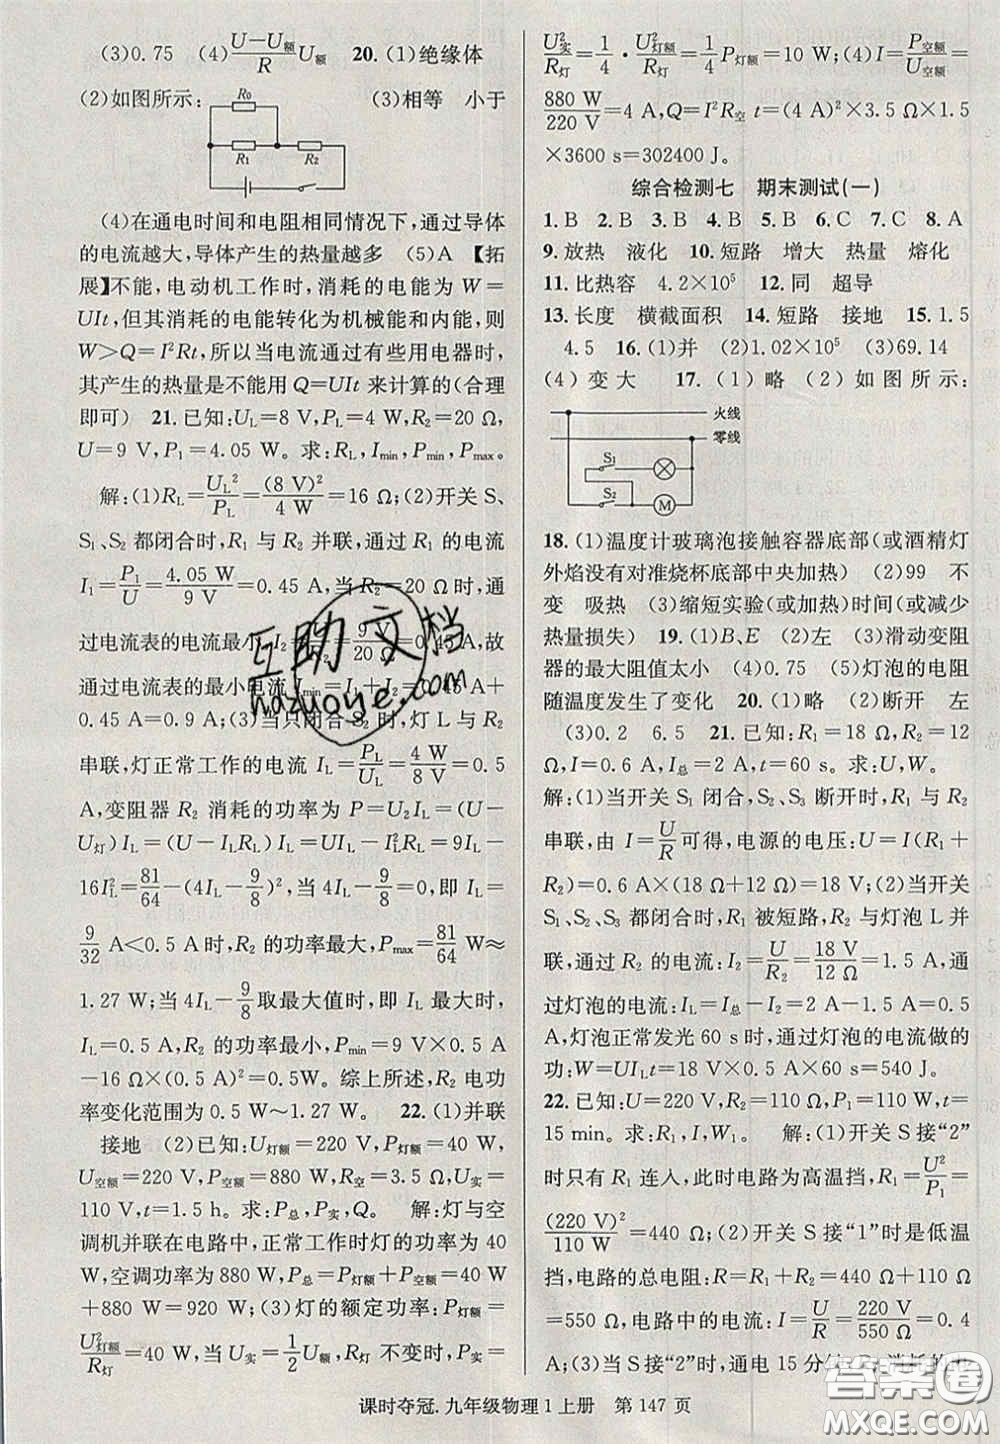 (3)0.75 (4)\frac{U-U_额}{R}U_额 20. (1)绝缘体
(2)如图所示: (3)相等 小于
R₀
R₁ R₂
(4)在通电时间和电阻相同情况下,通过导体
的电流越大,导体产生的热量越多 (5)A 【拓
展】不能,电动机工作时,消耗的电能为 W=
UIt,但其消耗的电能转化为机械能和内能,则
W>Q=I²Rt,所以当电流流过有些用电器时,
其产生的热量是不能用 Q=UIt 来计算的(合理
即可) 21. 已知:U_L=8 V,P_L=4 W,R₂=20 Ω,
U=9 V,P₁=4.05 W。求:R_L,I_min,P_min,P_max。
解:(1)R_L=\frac{U_L²}{P_L}=\frac{(8 V)²}{4 W}=16 Ω;(2)开关 S、
S₁、S₂ 都闭合时,R₁ 与 R₂ 并联,R₁ 的电流
I₁=\frac{P₁}{U}=\frac{4.05 W}{9 V}=0.45 A,当 R₂=20 Ω时,通
过电流表的电流最小,I₂=\frac{9 V}{20 Ω},故
通过电流表的最小电流 I_min=I₁+I₂=0.45 A+
0.45 A=0.9 A;(3)当只闭合 S₂ 时,灯 L 与 R₂
串联,灯正常工作的电流 I_L=\frac{P_L}{U_L}=\frac{4 W}{8 V}=0.5
A,变阻器 R₂ 消耗的功率为 P=U₂I_L=(U−
U_灯)I_L=(U−I_LR_L)I_L=UI_L−I_L²R_L=9I_L−
16I_L²=\frac{81}{64}−(4I_L−\frac{9}{8})²,当 4I_L−\frac{9}{8}=0,即 I_L=
\frac{9}{32} A<0.5 A 时,R₂ 的功率最大,P_max=\frac{81}{64} W≈
1.27 W;当 4I_L−\frac{9}{8}取最大值时,即 I_L 最大时,
I_L=0.5 A,R₂ 的功率最小,P_min=9 V×0.5 A
−16 Ω×(0.5 A)²=0.5W。综上所述,R₂ 电功
率变化范围为 0.5 W～1.27 W。 22. (1)并联
接地 (2)已知:U_灯额=220 V,P_灯额=40 W,
U_空额=220 V,P_空额=880 W,R_空=3.5 Ω,U_实=
110 V,t=1.5 h。求:P_总,P_实,Q。 解:灯与空
调机并联在电路中,正常工作时灯的功率为 40
W,空调功率为 880 W,P_总=P_灯额+P_空额=40 W
+880 W=920 W;(3)灯的额定功率:P_灯额=
\frac{U²_灯额}{R_灯}=40 W,当 U_实=\frac{1}{2}U_额,R_灯 不变时,P_实=
\frac{U²_实}{R_灯}=\frac{1}{4}·\frac{U²_灯额}{R_灯}=\frac{1}{4}P_灯额=10 W;(4)I=\frac{P_空额}{U_空额}=
\frac{880 W}{220 V}=4 A,Q=I²R_空 t=(4 A)²×3.5 Ω×1.5
×3600 s=302400 J。
综合检测七 期末测试(一)
1. B 2. B 3. B 4. D 5. B 6. C 7. C 8. A
9. 放热 液化 10. 短路 增大 热量 熔化
11. 比热容 4.2×10⁵ 12. 同 超导
13. 长度 横截面积 14. 短路 接地 15. 1.5
4.5 16. (1)并 (2)1.02×10⁵ (3)69.14
(4)变大 17. (1)略 (2)如图所示:
火线
零线
S₁
S₂ M
18. (1)温度计玻璃泡接触容器底部(或酒精灯
外焰没有对准烧杯底部中央加热) (2)99 不
变 吸热 (3)缩短实验(或加热)时间(或减少
热量损失) 19. (1)B、E (2)左 (3)滑动变阻
器的最大阻值太小 (4)0.75 (5)灯泡的电阻
随温度发生了变化 20. (1)略 (2)断开 左
(3)0.2 6.5 21. 已知:R₁=18 Ω,R₂=12
Ω,I=0.6 A,I_总=2 A,t=60 s。求:U,W。
解:(1)当开关 S₁ 闭合,S₂、S₃ 断开时,R₁ 与 R₂
串联,由 I=\frac{U}{R}可得,电源的电压:U=I(R₁+
R₂)=0.6 A×(18 Ω+12 Ω)=18 V;(2)当开关
S₁、S₂、S₃ 都闭合时,R₁ 被短路,R₂ 与灯泡 L 并
联,通过 R₂ 的电流:I₂=\frac{U}{R₂}=\frac{18 V}{12 Ω}=1.5 A,
通过灯泡的电流:I_L=I_总−I₂=2 A−1.5 A=0.5
A,灯泡正常发光 60 s时,通过灯泡的电流做的
功:W=UI_Lt=18 V×0.5 A×60 s=540 J。
22. 已知:U=220 V,R₂=110 Ω,P₁=110 W,t=
15 min。求:R₁,I,W₁。 解:(1)开关 S接“2”
时只有 R₁ 连入,此时电路为高温挡,R₁=\frac{U²}{P₁}=
\frac{(220 V)²}{110 W}=440 Ω;(2)开关 S 接“1”时是低温
挡,电路的总电阻:R=R₁+R₂=440 Ω+110 Ω
=550 Ω,电路中的电流:I=\frac{U}{R}=\frac{220 V}{550 Ω}=0.4
A;(3)当 S 接“2”时,通电 15 分钟
课时夺冠. 九年级物理 1 上册 第 147 页
互助文档
hdzuoye.com
答案圈
MXQE.COM